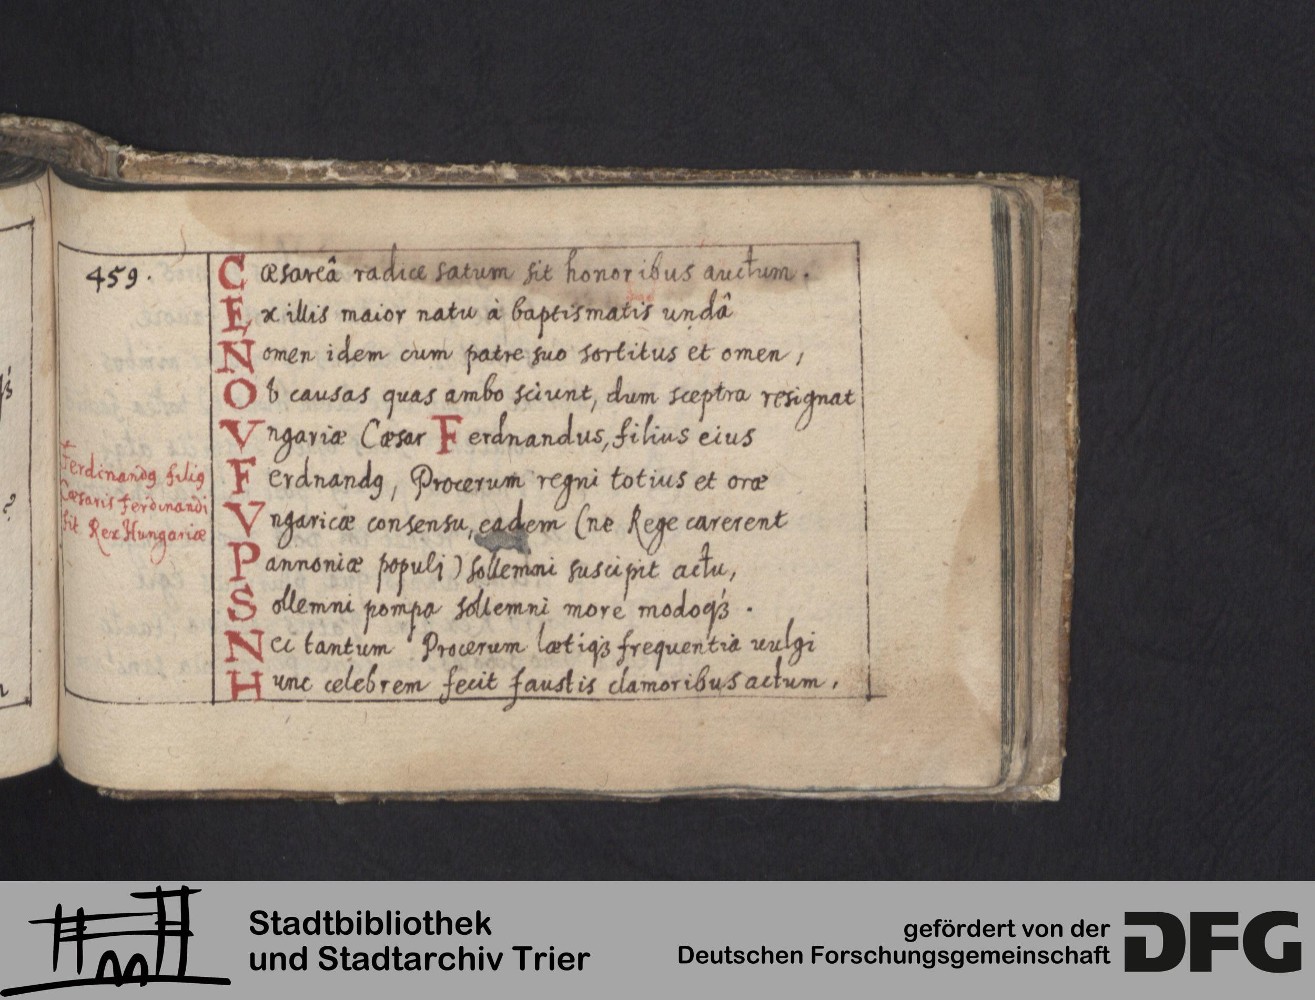 459.
Cæsareâ radice satum sit honoribus auctum.
Ex illis maior natu à baptismatis undâ
Nomen idem cum patre suo sortitus et omen,
Ob causas quas ambo sciunt, dum sceptra resignat
Vngariæ Cæsar Ferdnandus, filius eius
Ferdnandꝯ, Procerum regni totius et oræ
Vngaricæ consensu, eadem (ne Rege carerent
Pannoniæ populi) sollemni suscipit actu,
Sollemni pompa sollemni more modoqꝫ.
Nec tantum Procerum lætiqꝫ frequentia vulgi
Hunc celebrem fecit faustis clamoribus actum,
Ferdinandꝯ filiꝯ
Cæsaris Ferdinandi
fit Rex Hungariæ
Stadtbibliothek
und Stadtarchiv Trier
gefördert von der
Deutschen Forschungsgemeinschaft
DFG